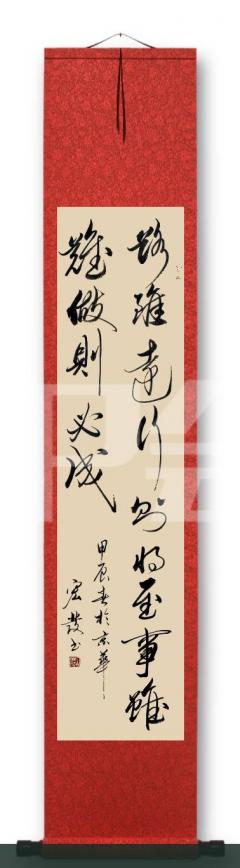 路雖遠行则将至事雖
難做則必成
甲辰春於京華
宏發书